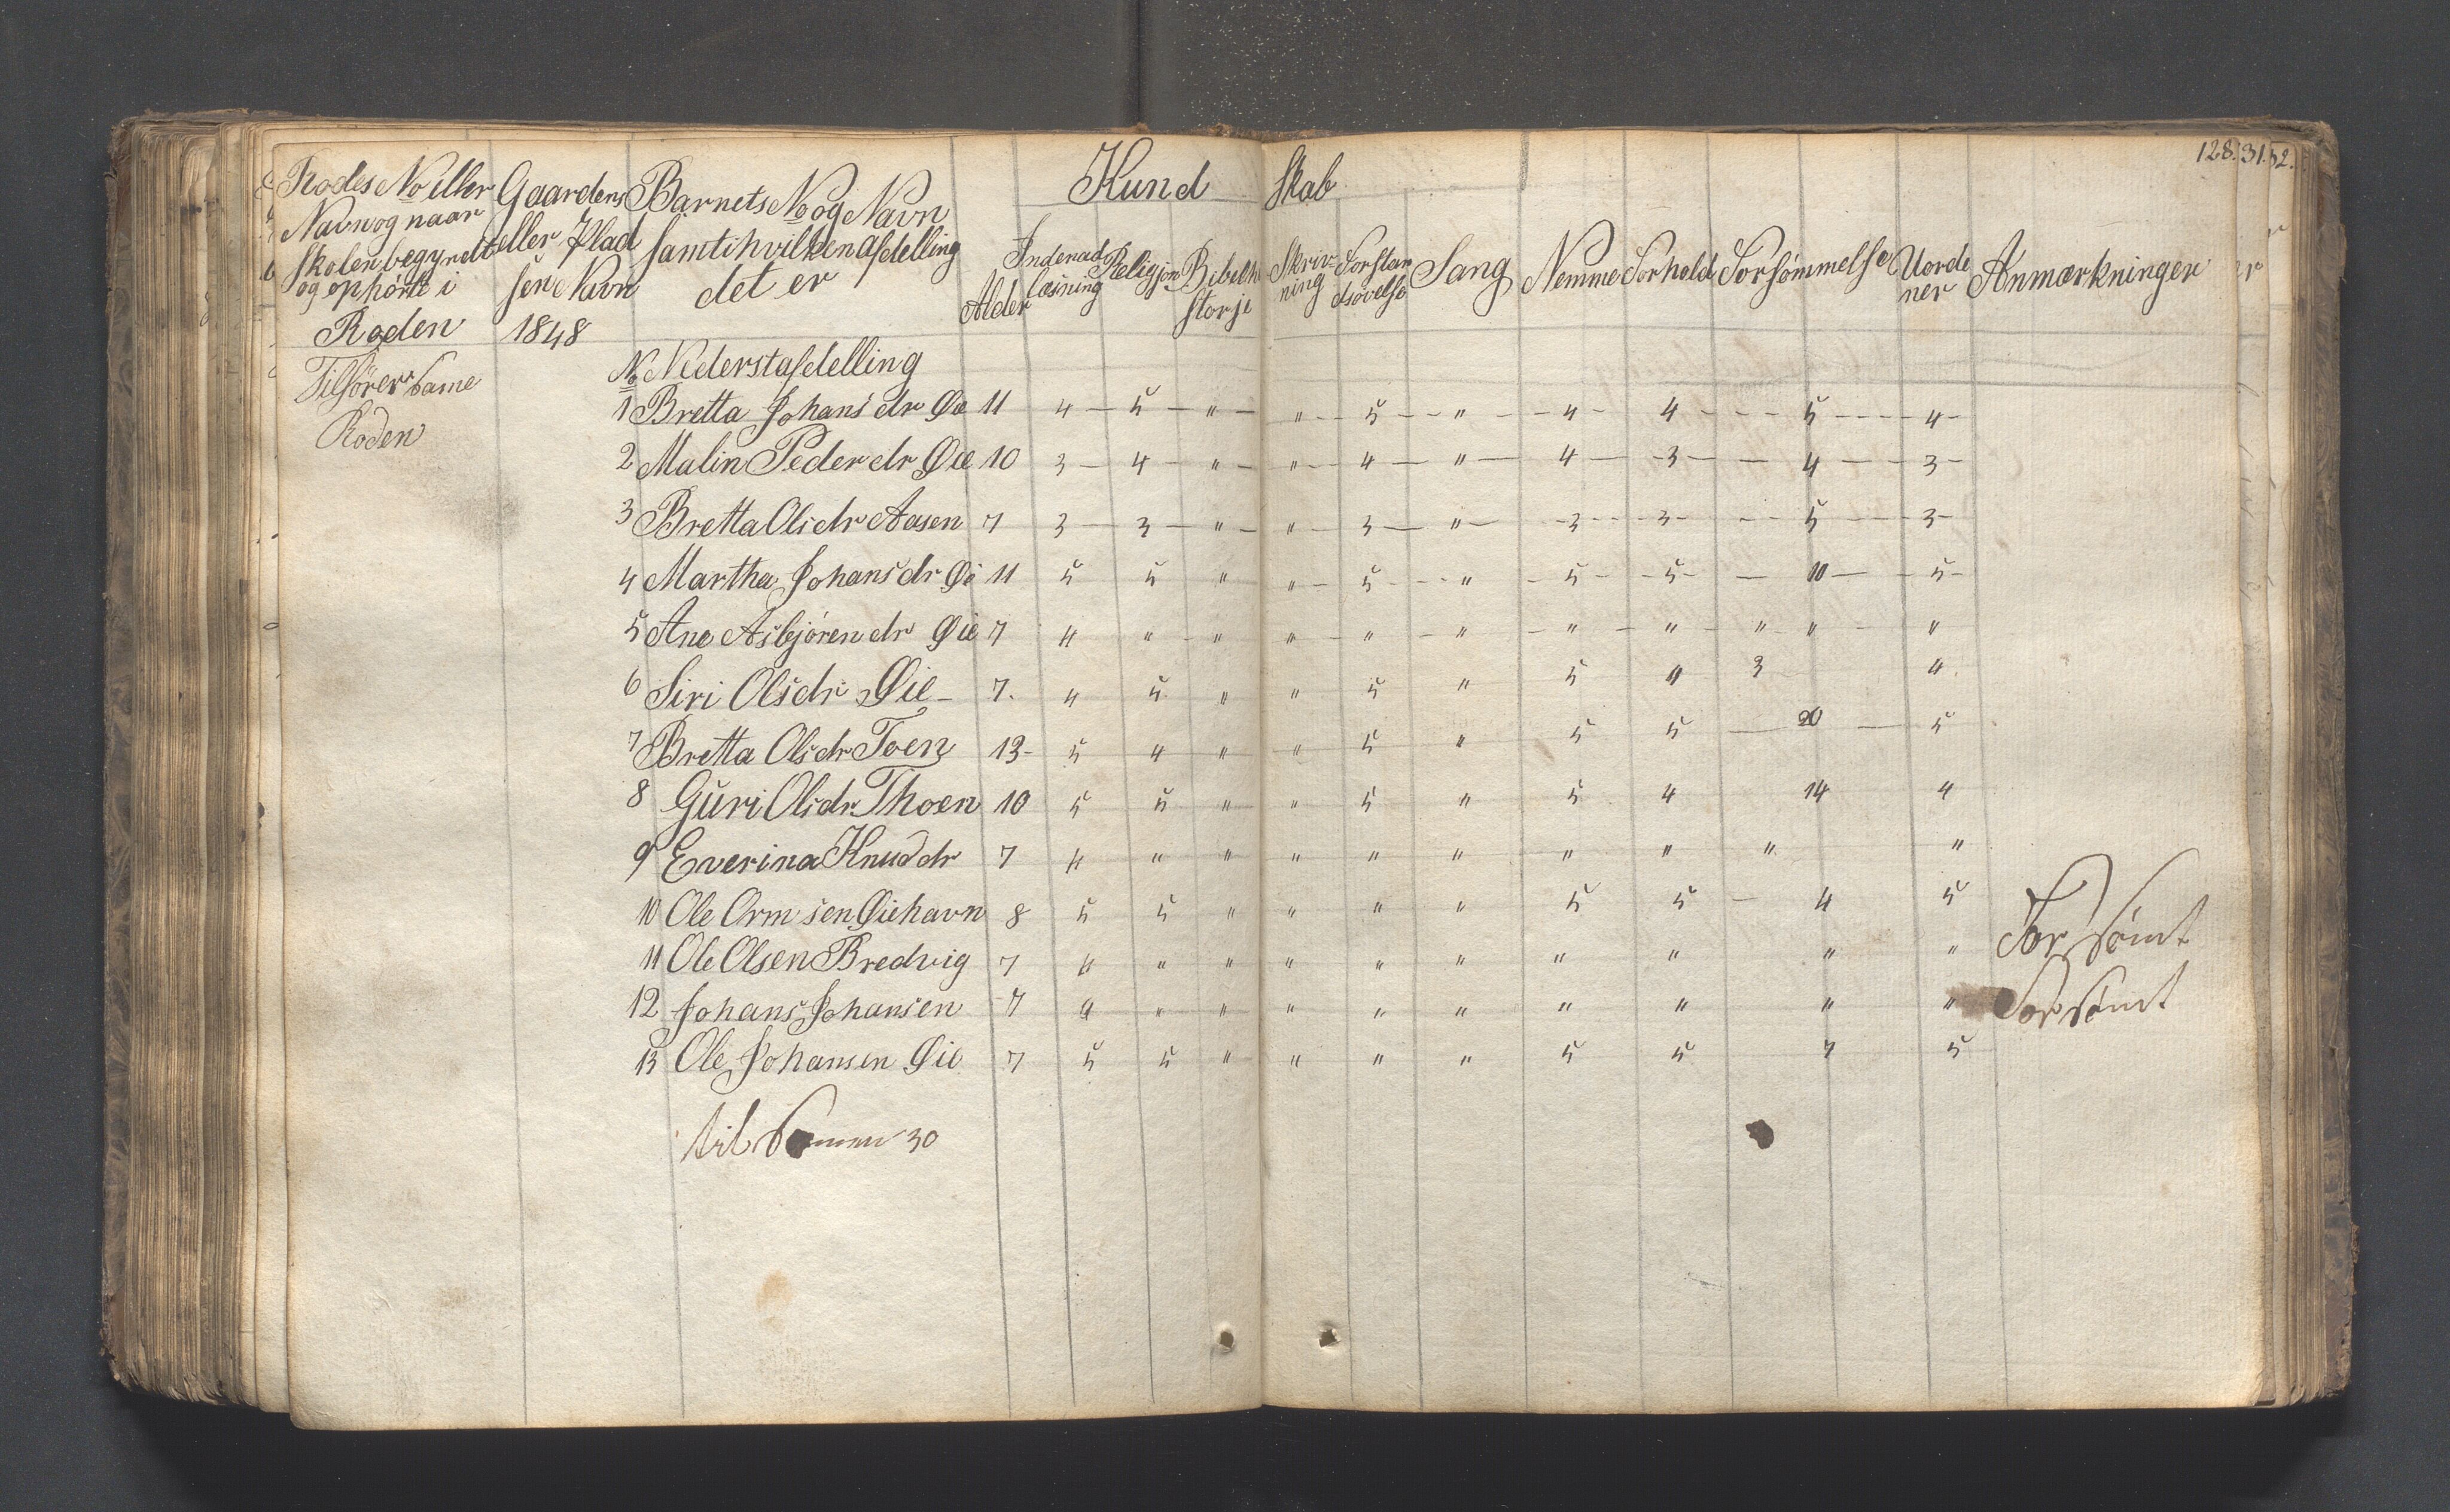 128. 31. 32.
Rodes No eller Gaardens Barnets No og Navn Kund skab
Navn og naar eller Plad samt i hvilken afdelling
skolen begyndt sens Navn det er
og ophørte i
Alder Indenad læsning Religjon Bibelhi storje Skriv ning Forstan dsøvelse Sang Nemme Forhold Forsømmelse Uorde ner Anmærkninger
Roden 1848
Tilhører Same No Nederstafdelling
Roden
1 Bretta Johans dr Øie 11 4 — 5 — " — " — 5 — " — 4 — 4 — 5 — 4 —
2 Malin Peder dr Øie 10 3 — 4 — " — " — 4 — " — 4 — 3 — 4 — 3 —
3 Bretta Ols dr Aasen 7 3 — 3 — " — " — 3 — " — 3 — 3 — 5 — 3 —
4 Martha Johans dr Øi 11 5 5 " " — 5 — " — 5 — 5 — 10 — 5 —
5 Ane Asbjøren dr Øie 7 4 " " " " " " " " " "
6 Siri Ols dr Øie 7. 4 5 " " 5 " 5 4 3 4
7 Bretta Ols dr Toen 13 — 5 4 " " 5 " 5 5 — 20 — 5
8 Guri Ols dr Thoen 10 5 5 " " 5 " 5 4 14 4
9 Everina Knud dr 7 4 " " " " " " " " "
10 Ole Orm sen Øiehavn 8 5 5 " " " " 5 5 — 4 5
11 Ole Olsen Bredvig 7 4 " " " " " " " " " Forsømt
12 Johans Johansen 7 4 " " " " " " " " " Forsømt
13 Ole Johansen Øie 7 5 5 " " " " 5 5 7 5
til Sammen 30